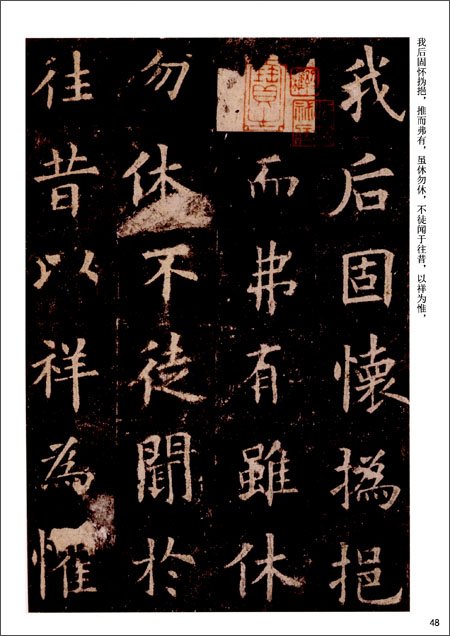 我后固怀㧑挹，推而弗有，虽休勿休，不徒闻于往昔，以祥为惟，
我后固懷撝挹
而弗有雖休
勿休不徒聞於
往昔以祥為惟
48